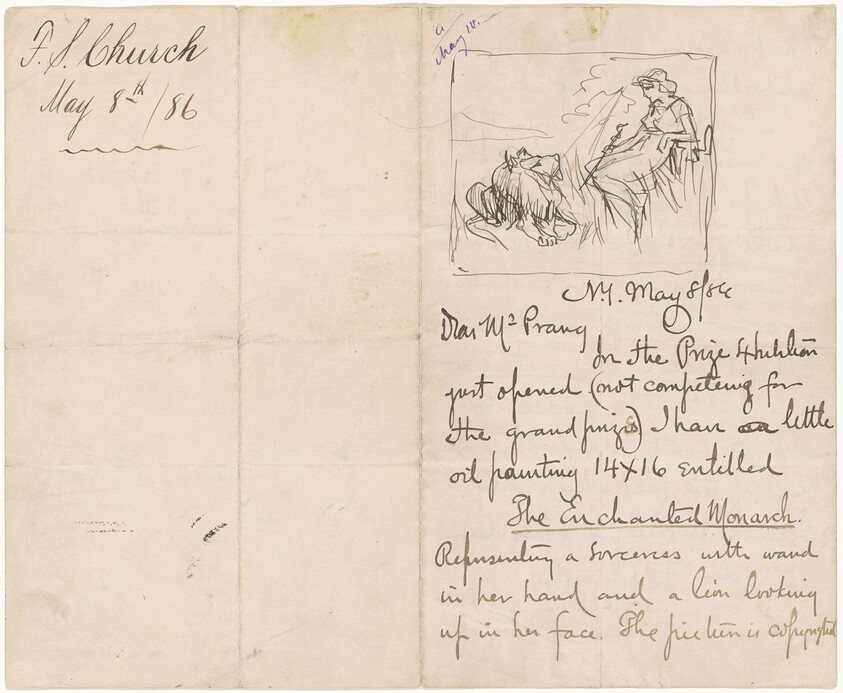 F. S. Church
May 8th /86
a
May 10.
N.Y. May 8/86
Dear Mr Prang
In the Prize Exhibition
just opened (not competing for
the grand prizes) I have a little
oil painting 14X16 entitled
The Enchanted Monarch.
Representing a Sorceress with wand
in her hand and a lion looking
up in her face. The picture is copyrighted